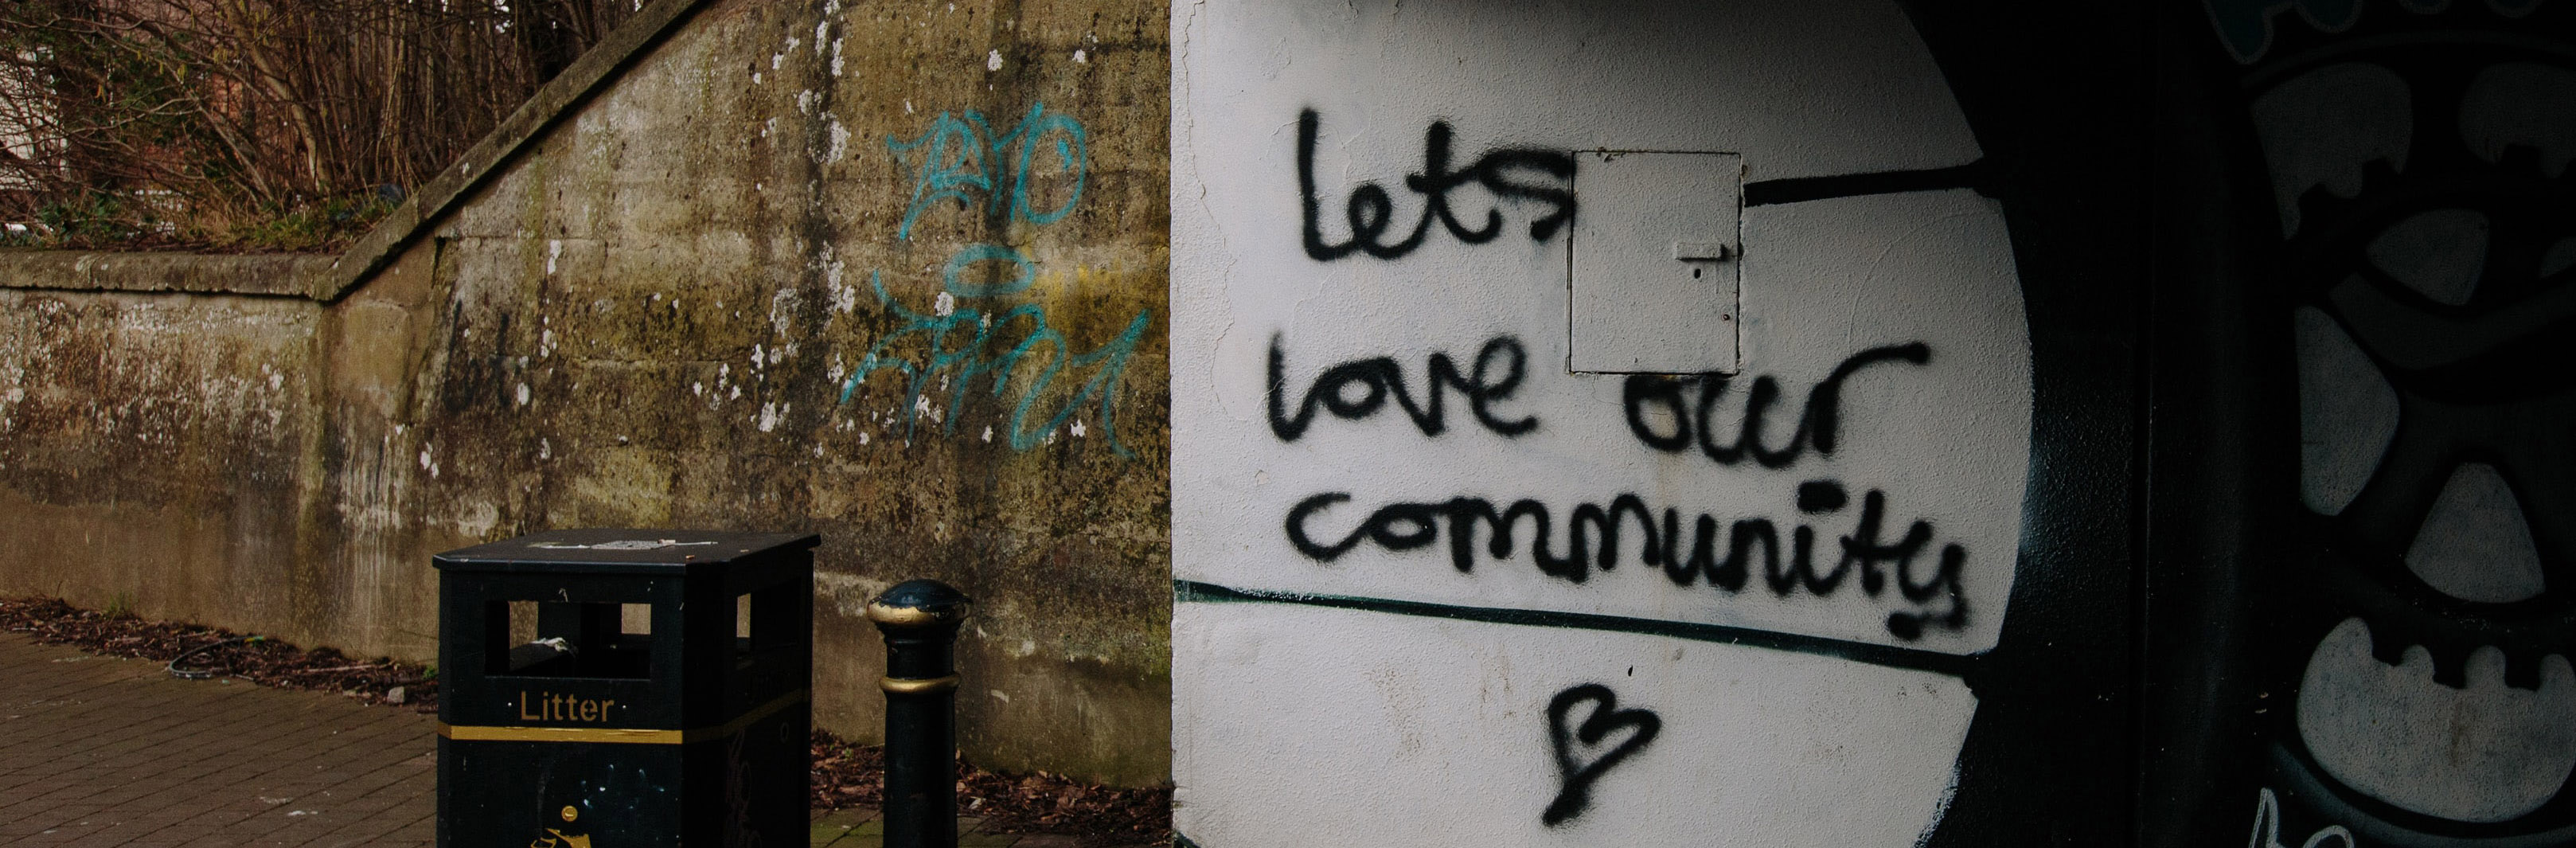 Litter
lets
love our
community